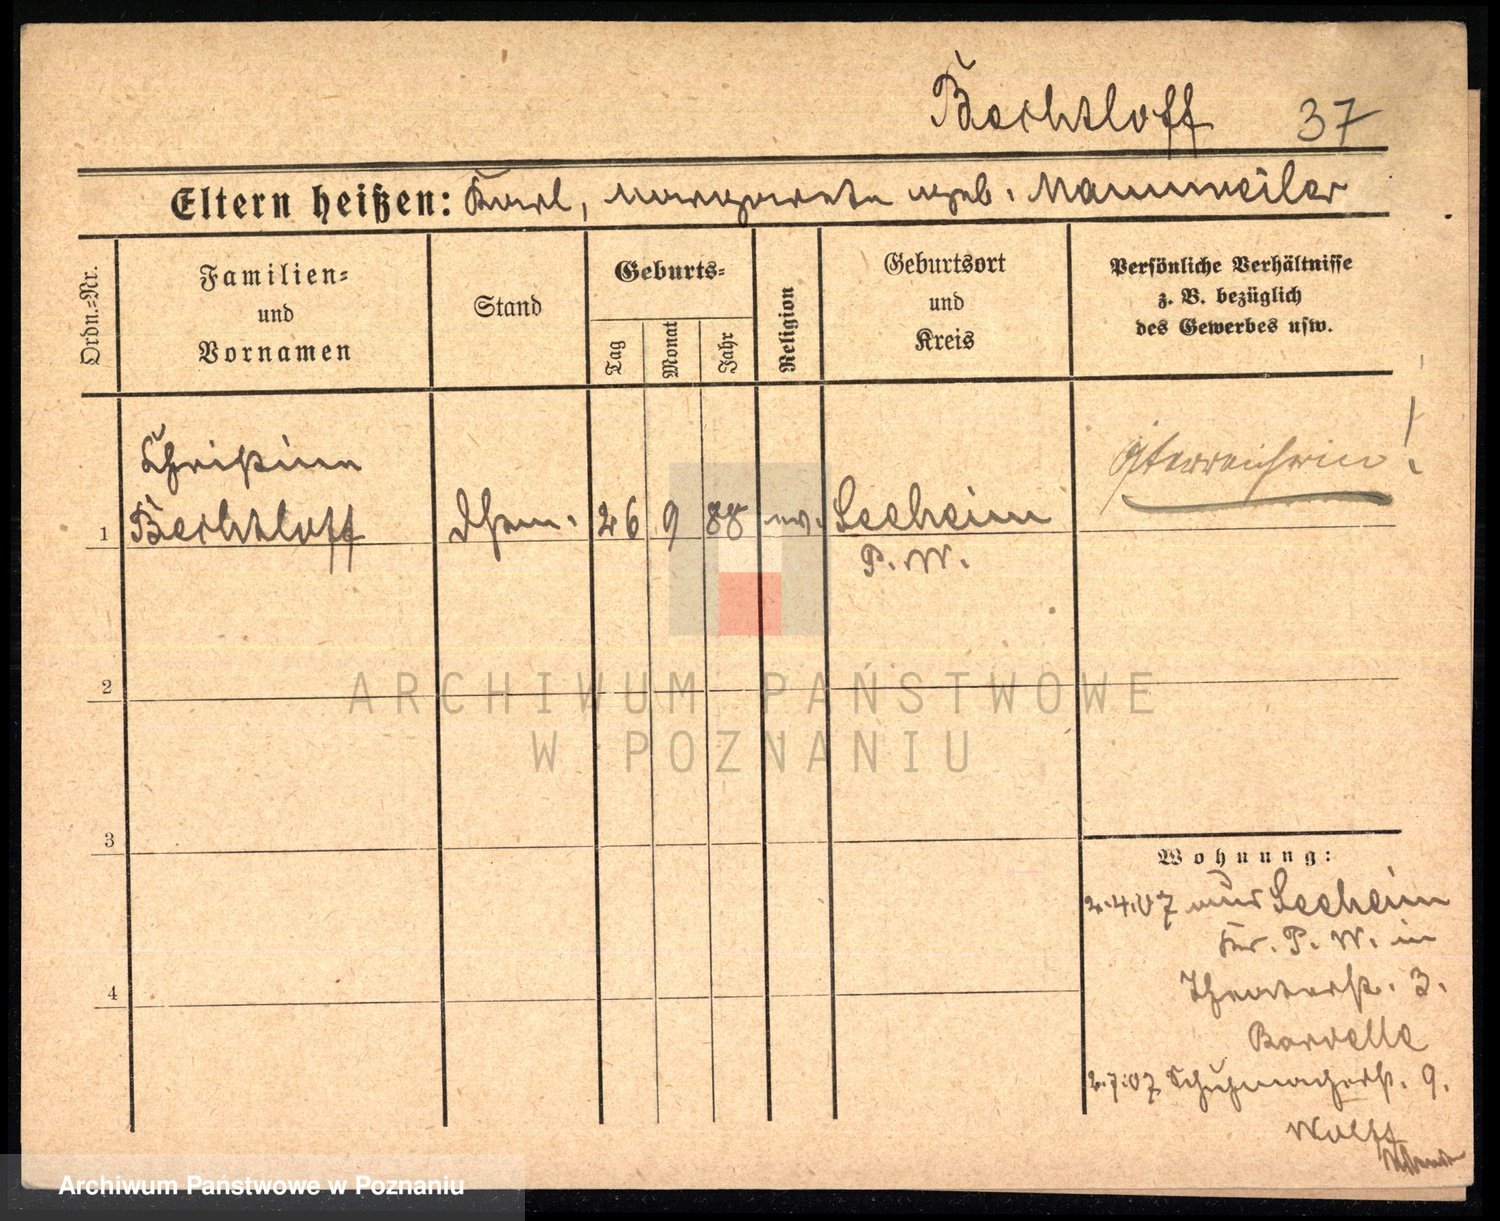 Bechtloff 37
Eltern heißen: Karl, Margarete geb. Mannweiler
Ordn.=Nr.
Familien=
und
Vornamen
Stand
Geburts=
Tag
Monat
Jahr
Religion
Geburtsort
und
Kreis
Persönliche Verhältnisse
z. B. bezüglich
des Gewerbes usw.
Christine
1 Bechtloff 26 9 88 ev. Seeheim
P. W.
Österreicherin!
2
3
4
Wohnung:
2.4.07 aus Seeheim
Kr. P. W. in
Theaterstr. 3.
2.7.07 Schuhmacherstr. 9.
Wolff
ARCHIWUM PAŃSTWOWE
W POZNANIU
Archiwum Państwowe w Poznaniu